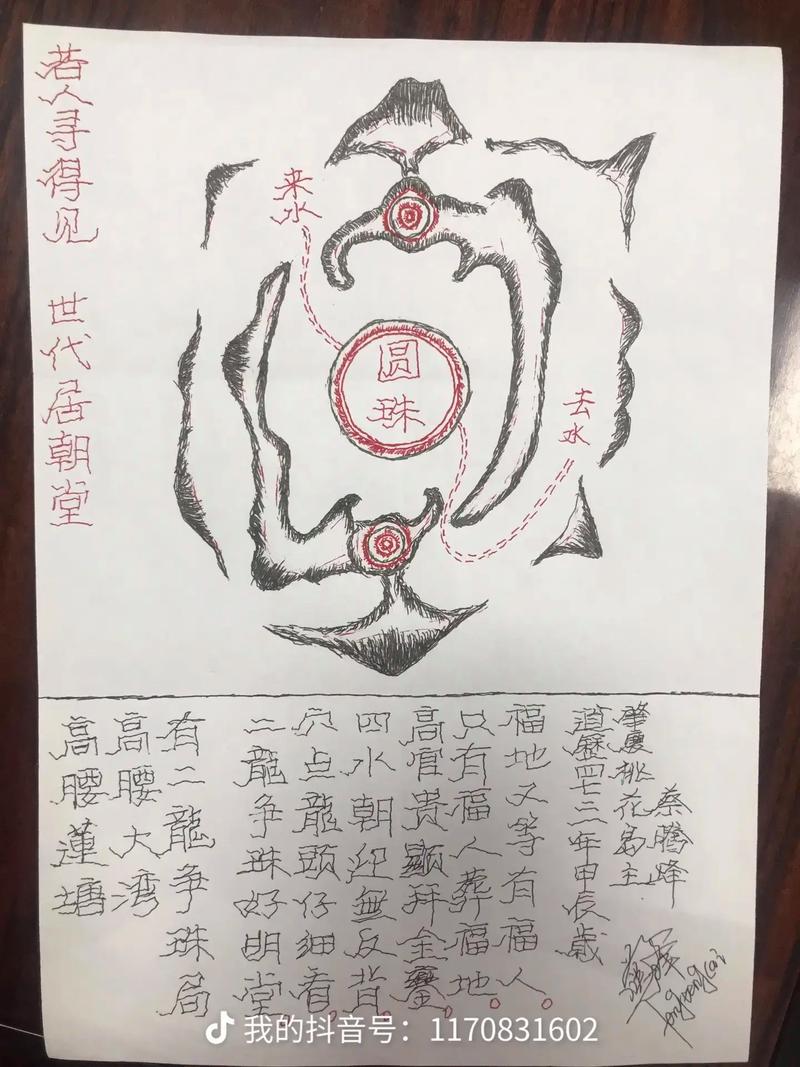 若人寻得见 世代居朝堂
来水
圆珠
去水
高腰莲塘
高腰大湾
有二龍争珠局
二龍争珠好明堂。
穴点龍頭仔细看。
四水朝迎無反背。
高官贵顯拜金鑾。
只有福人葬福地。
福地又等有福人。
道歷四七二一年甲辰歲
肇慶桃花島主
蔡腾峰
我的抖音号：1170831602